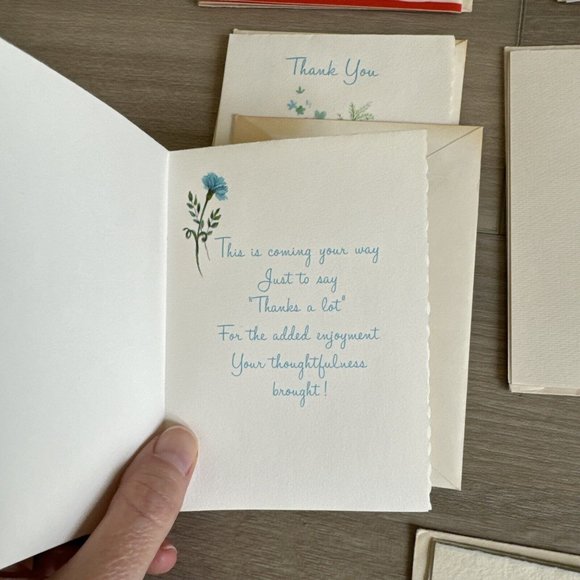 Thank You
This is coming your way
Just to say
"Thanks a lot"
For the added enjoyment
Your thoughtfulness
brought!